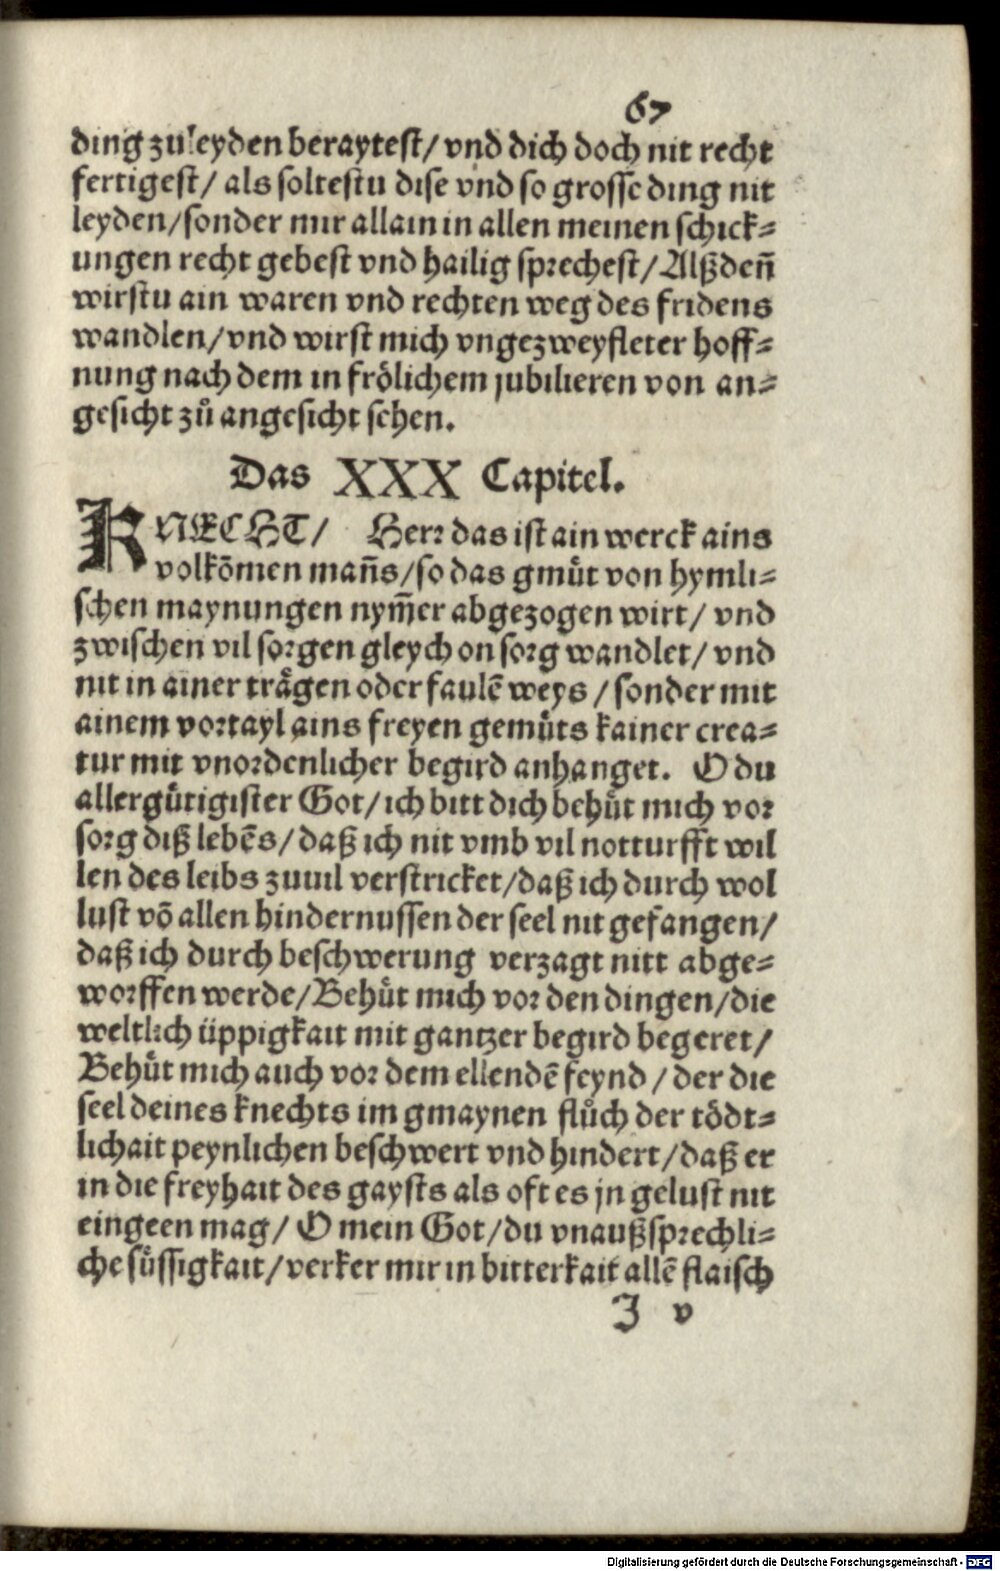 67
ding zuleyden beraytest/ vnd dich doch nit recht
fertigest/ als soltestu dise vnd so grosse ding nit
leyden/sonder mir allain in allen meinen schick⸗
ungen recht gebest vnd hailig sprechest/ Alßdeñ
wirstu ain waren vnd rechten weg des fridens
wandlen/ vnd wirst mich vngezweyfleter hoff⸗
nung nach dem in frölichem jubilieren von an⸗
gesicht zů angesicht sehen.
Das XXX Capitel.
KNECHT/ Herr das ist ain werck ains
volkõmen mañs/so das gmüt von hymli⸗
schen maynungen nym̃er abgezogen wirt/ vnd
zwischen vil sorgen gleych on sorg wandlet/ vnd
nit in ainer trägen oder faulẽ weys / sonder mit
ainem vortayl ains freyen gemüts kainer crea⸗
tur mit vnordenlicher begird anhanget. O du
allergütigister Got/ ich bitt dich behüt mich vor
sorg diß lebẽs/ daß ich nit vmb vil notturfft wil
len des leibs zuuil verstricket/daß ich durch wol
lust võ allen hindernussen der seel nit gefangen/
daß ich durch beschwerung verzagt nitt abge⸗
worffen werde/Behüt mich vor den dingen/die
weltlich üppigkait mit gantzer begird begeret/
Behüt mich auch vor dem ellendẽ feynd / der die
seel deines knechts im gmaynen flůch der tödt⸗
lichait peynlichen beschwert vnd hindert/daß er
in die freyhait des gaysts als oft es jn gelust nit
eingeen mag/ O mein Got/du vnaußsprechli⸗
che süssigkait/verker mir in bitterkait allẽ flaisch
J v
Digitalisierung gefördert durch die Deutsche Forschungsgemeinschaft - DFG